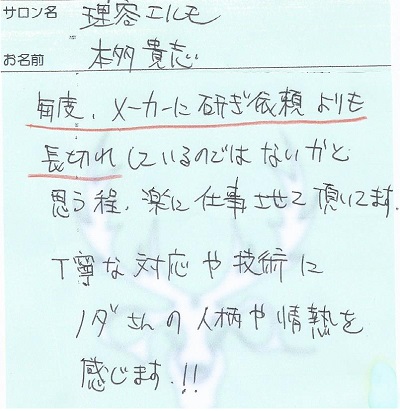 サロン名 理容エルモ
お名前 本多貴志
毎度、メーカーに研ぎ依頼よりも
長切れしているのではないかと
思う程、楽に仕事させて頂いてます。
丁寧な対応や技術に
ノダさんの人柄や情熱を
感じます!!